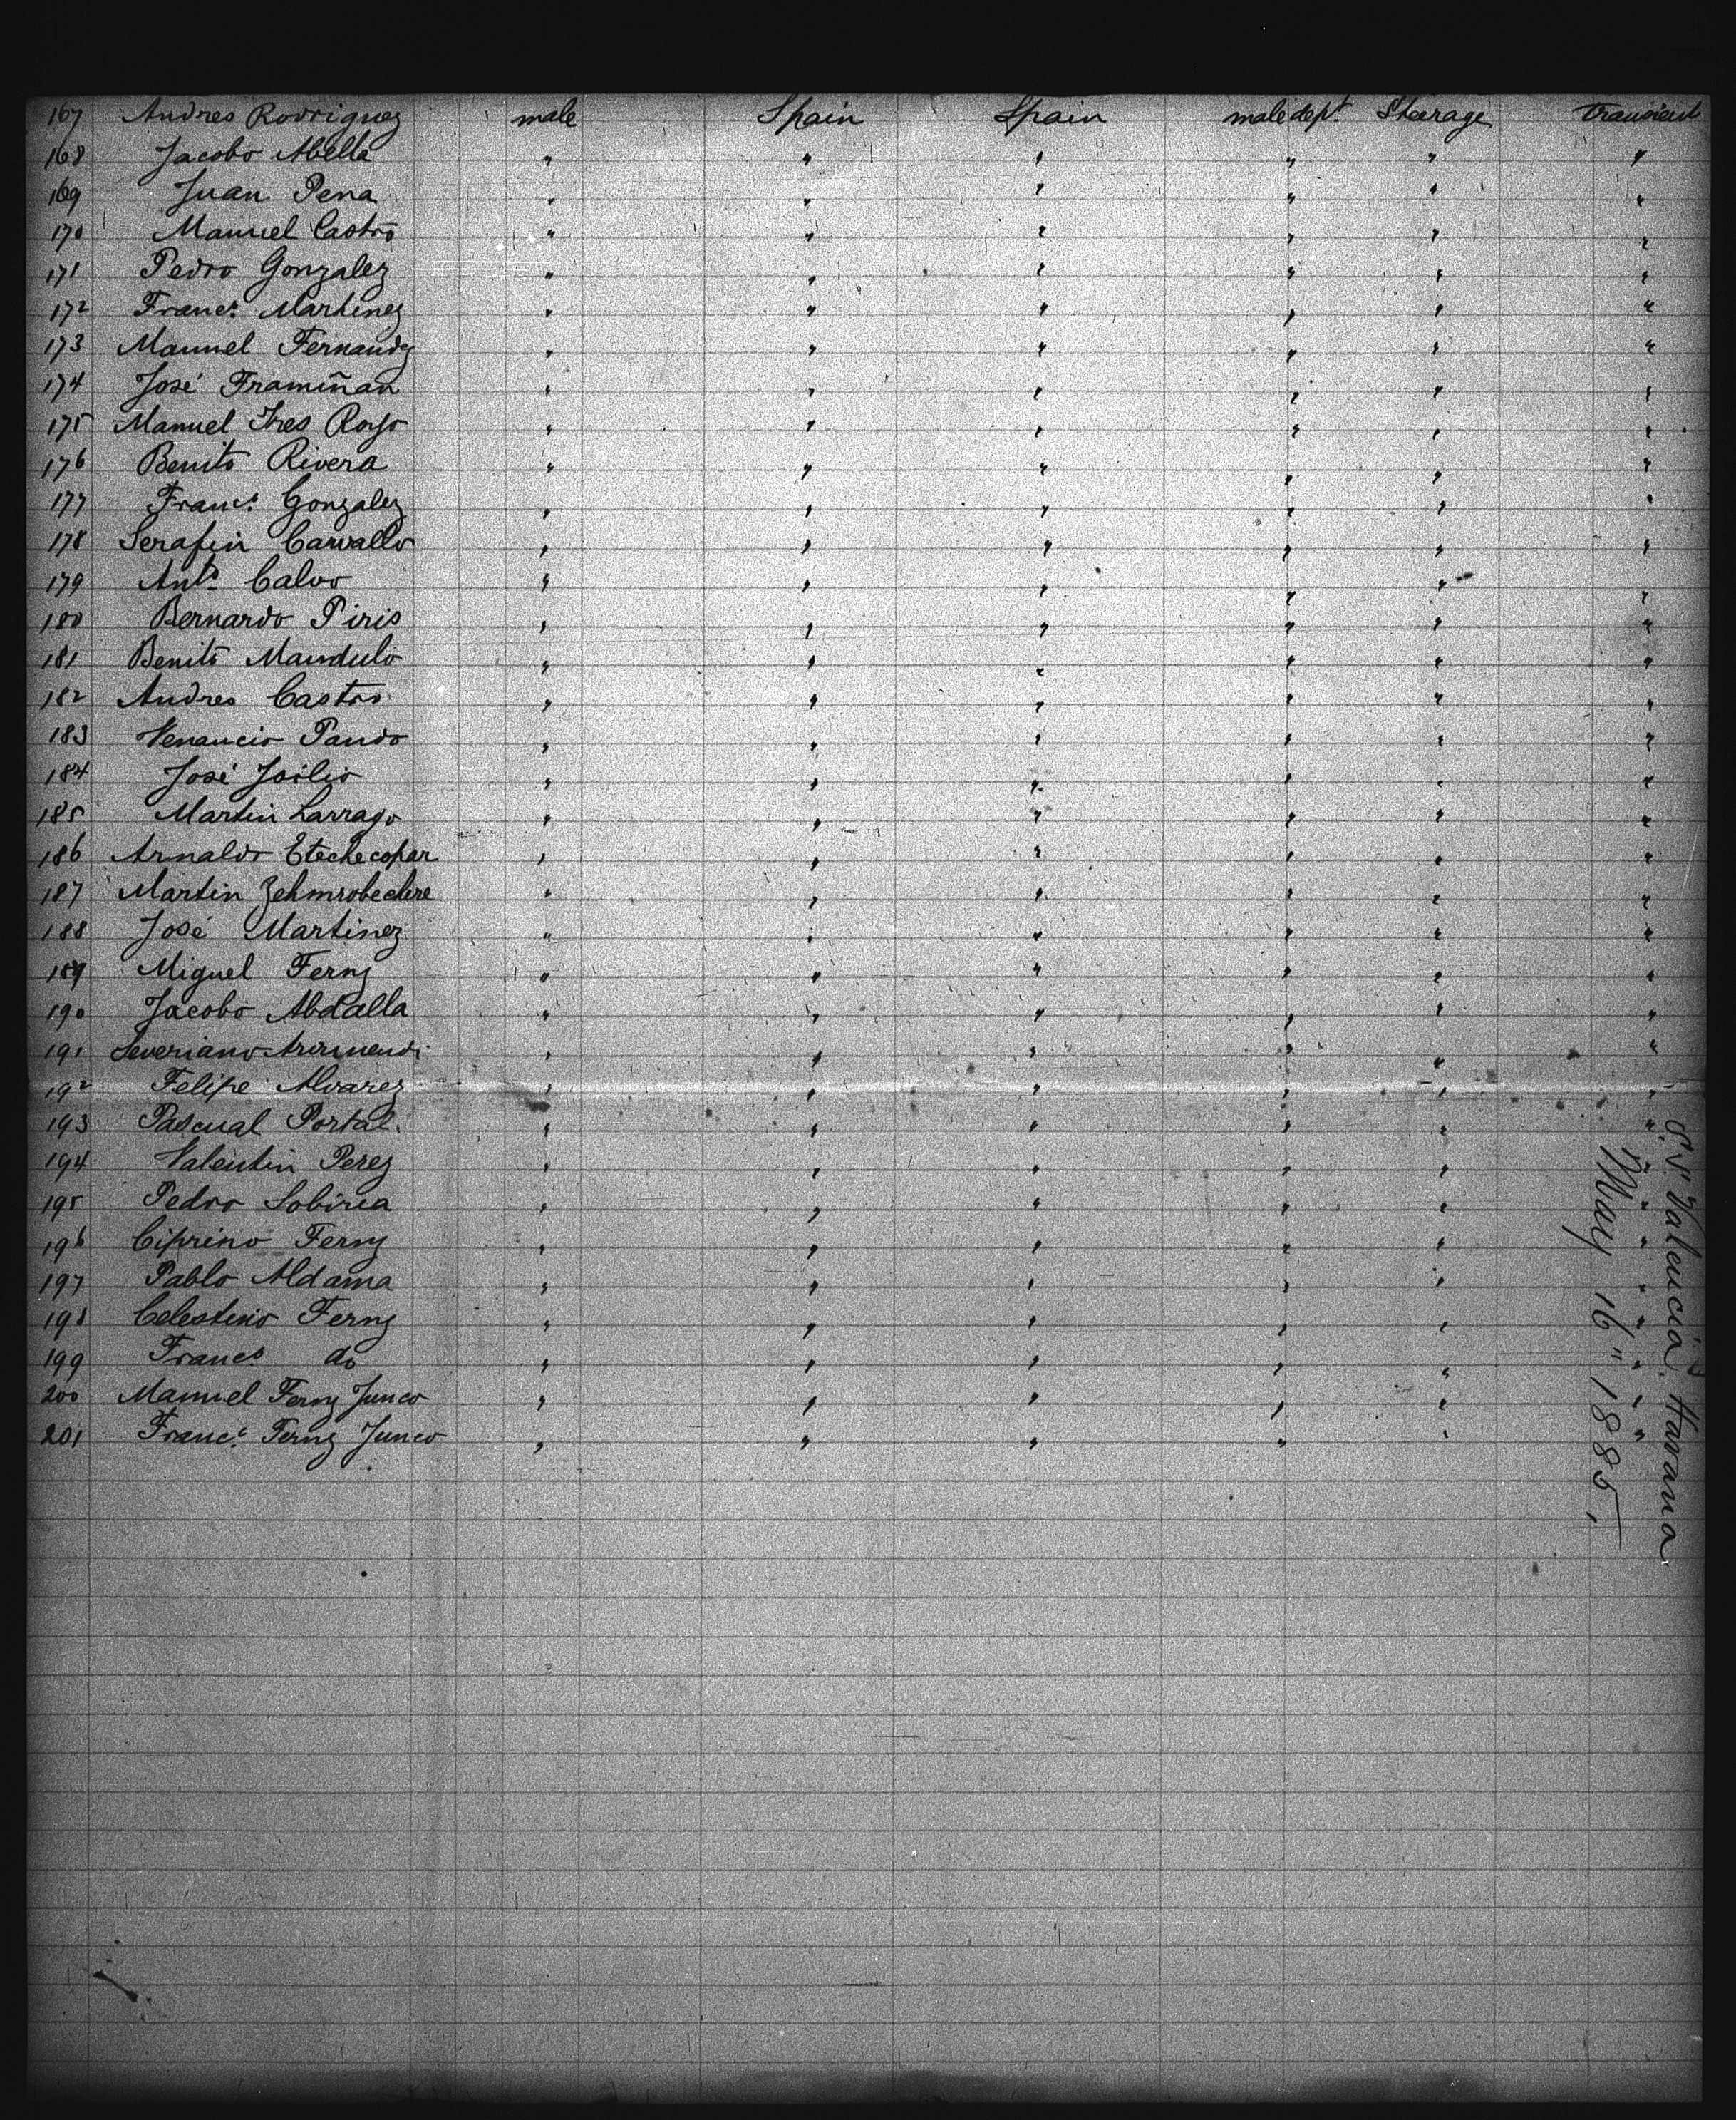 167 Andres Rodriguez male Spain Spain male dept. Steerage transient
168 Jacobo Abella " " " " " "
169 Juan Pena " " " " " "
170 Manuel Castro " " " " " "
171 Pedro Gonzalez " " " " " "
172 Franco. Martinez " " " " " "
173 Manuel Fernandz " " " " " "
174 José Framiñan " " " " " "
175 Manuel Tres Royo " " " " " "
176 Benito Rivera " " " " " "
177 Franco. Gonzalez " " " " " "
178 Serafin Carvallo " " " " " "
179 Anto. Calvo " " " " " "
180 Bernardo Piris " " " " " "
181 Benito Mandulo " " " " " "
182 Andres Castro " " " " " "
183 Venancio Pando " " " " " "
184 José " " " " " "
185 Martin Larrago " " " " " "
186 Arnaldo Etechecopar " " " " " "
187 Martin " " " " " "
188 José Martinez " " " " " "
189 Miguel Fernz " " " " " "
190 Jacobo Abdalla " " " " " "
191 Severiano " " " " " "
192 Felipe Alvarez " " " " " "
193 Pascual Portal. " " " " " "
194 Valentin Perez " " " " " "
195 Pedro " " " " " "
196 Ciprino Fernz " " " " " "
197 Pablo Aldama " " " " " "
198 Celestino Fernz " " " " " "
199 Franco do " " " " " "
200 Manuel Fernz Junco " " " " " "
201 Franco. Fernz Junco " " " " " "
S.S. Valencia Havana
May 16" 1885